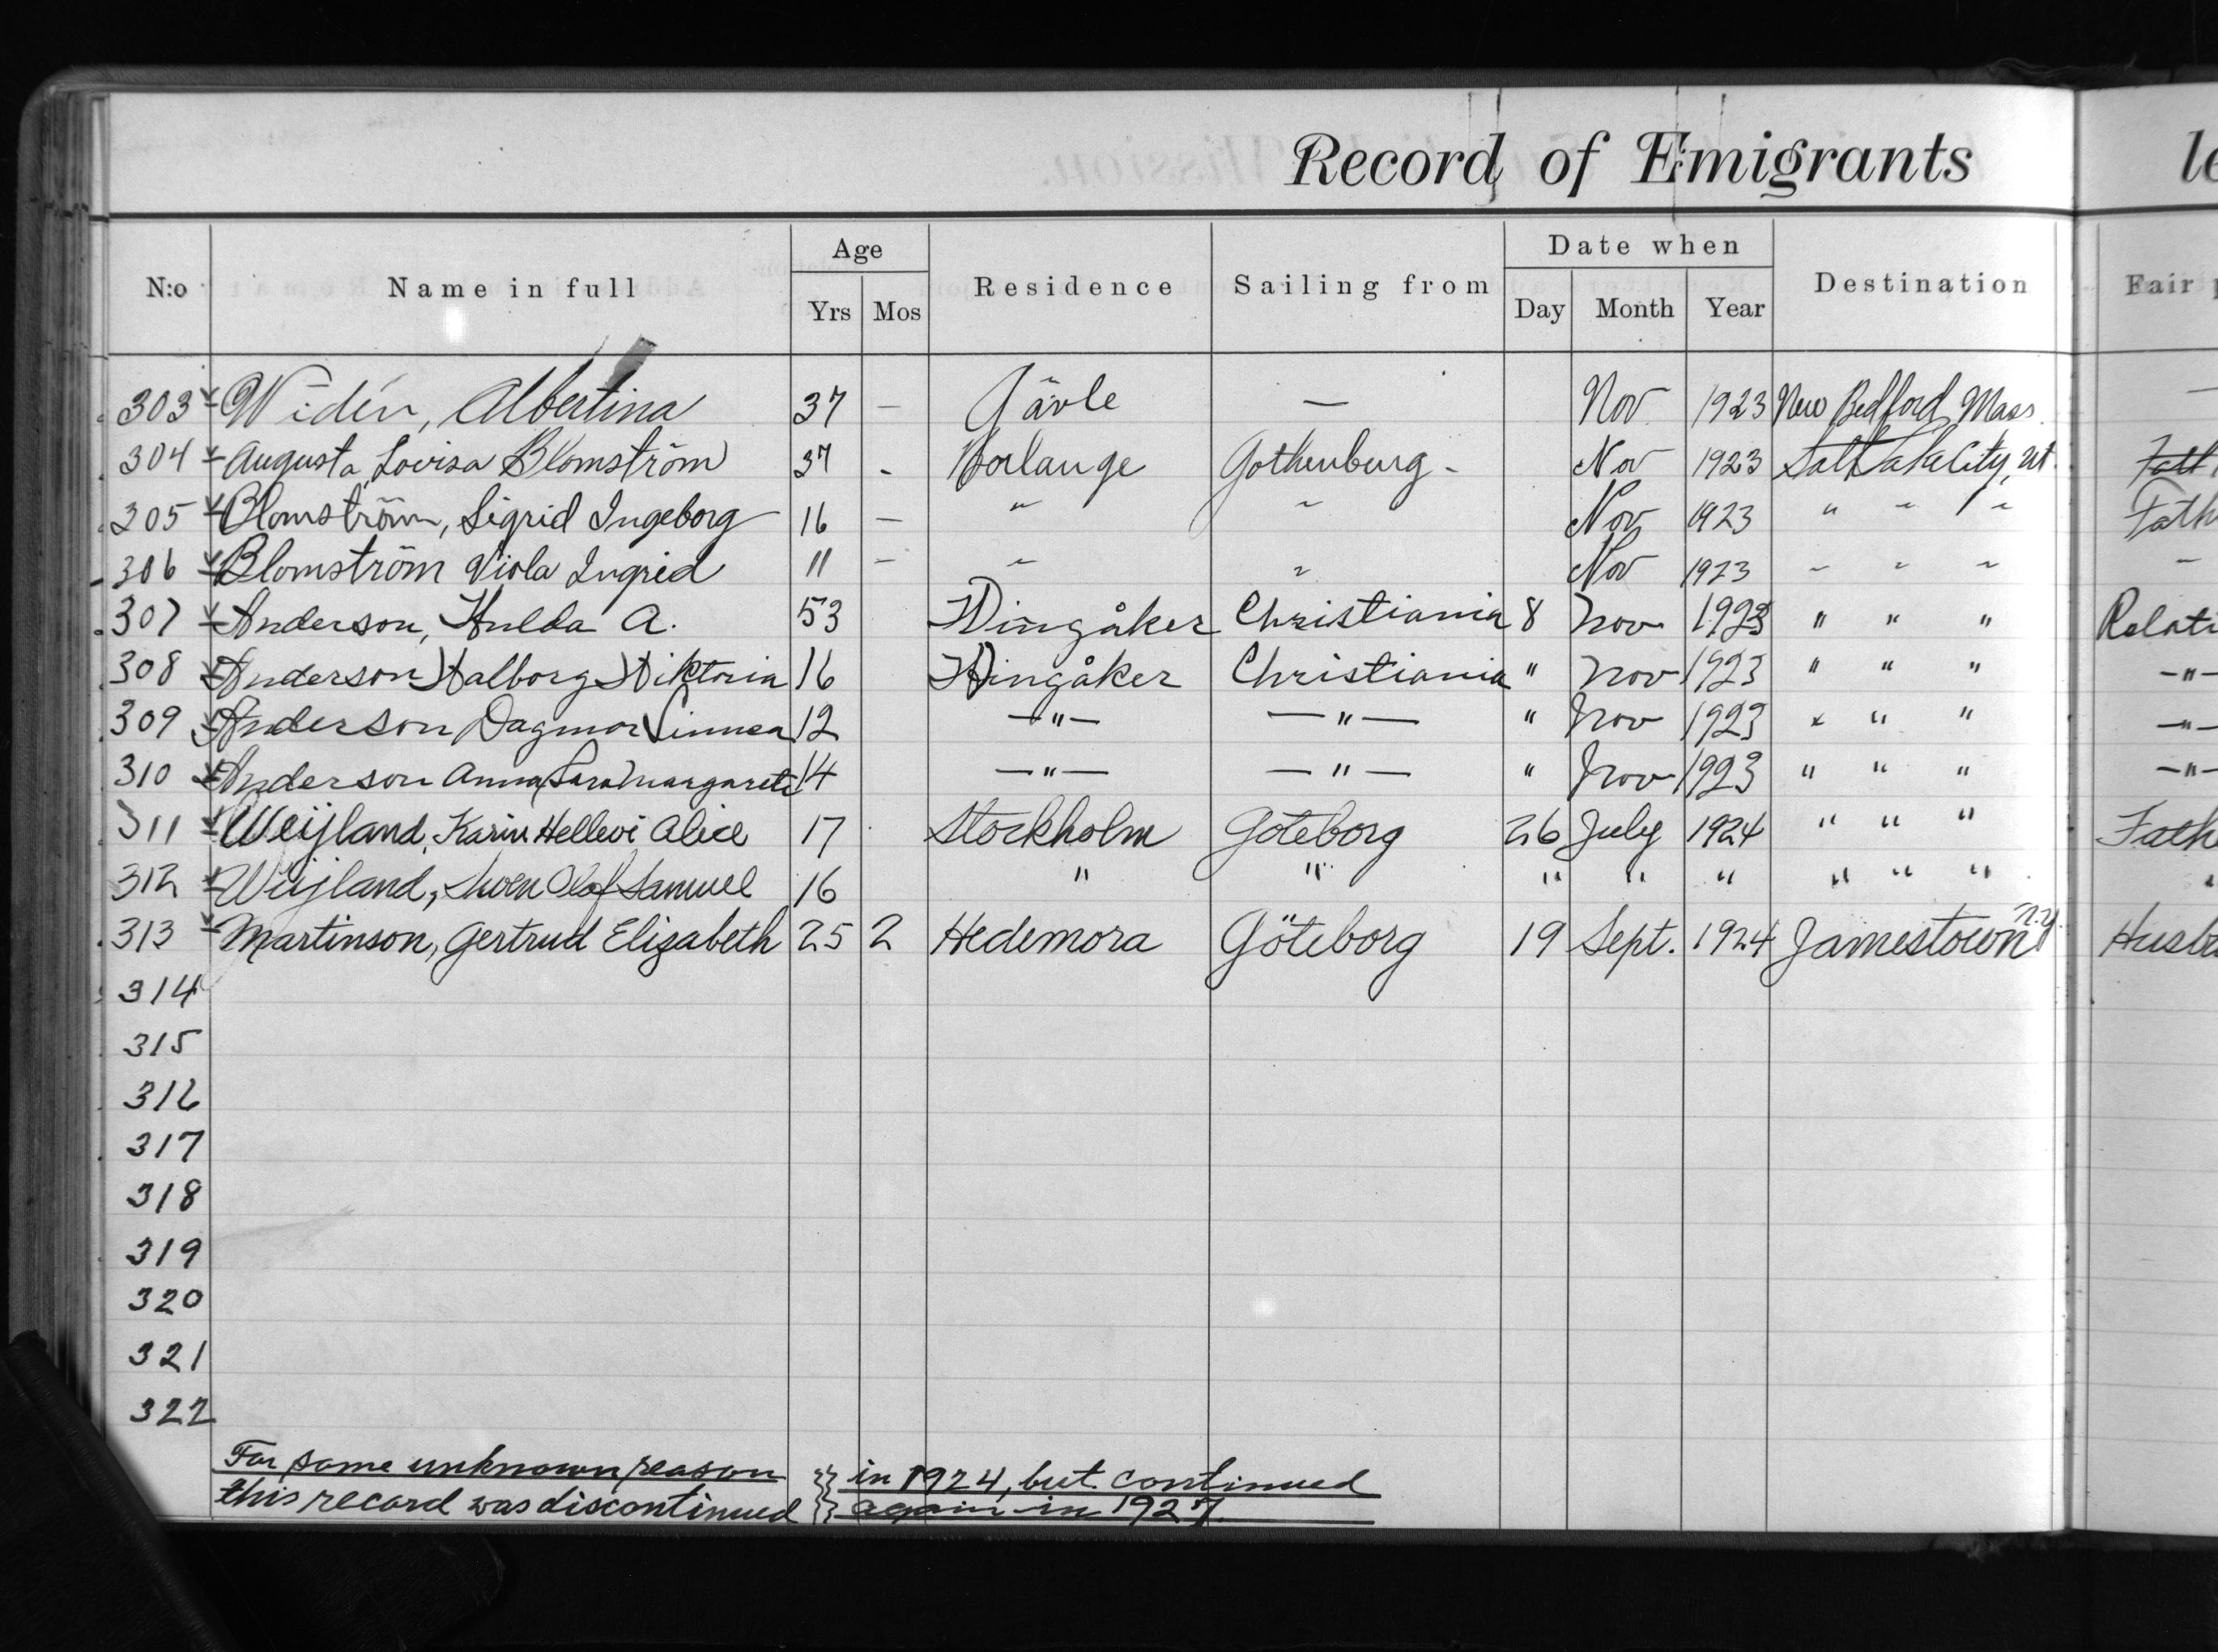 Record of Emigrants le
Age Date when
N:o Name in full Residence Sailing from Destination Fair
Yrs Mos Day Month Year
303 Widén, Albertina 37 — Gävle — Nov 1923 New Bedford Mass.
304 Augusta Lovisa Blomström 37 - Borlange Gothenburg - Nov 1923 Salt Lake City, Ut.
305 Blomström, Sigrid Ingeborg 16 — " " Nov 1923 " " " Fath
306 Blomström Viola Ingrid 11 — " " Nov 1923 " " " —
307 Anderson, Hulda A. 53 Wingåker Christiania 8 Nov 1923 " " " Relati
308 Anderson Walborg Wiktoria 16 Wingåker Christiania " Nov 1923 " " " —"—
309 Anderson Dagmar Linnea 12 —"— —"— " Nov 1923 " " " —"—
310 Anderson Anna Sara Margareta 14 —"— —"— " Nov 1923 " " " —"—
311 Weijland, Karin Hellevi Alice 17 Stockholm Göteborg 26 July 1924 " " " Fathe
312 Weijland, Swen Olof Samuel 16 " " " " " " " " "
313 Martinson, Gertrud Elizabeth 25 2 Hedemora Göteborg 19 Sept. 1924 Jamestown N.Y. Husb
314
315
316
317
318
319
320
321
322
For some unknown reason in 1924, but continued
this record was discontinued again in 1927.